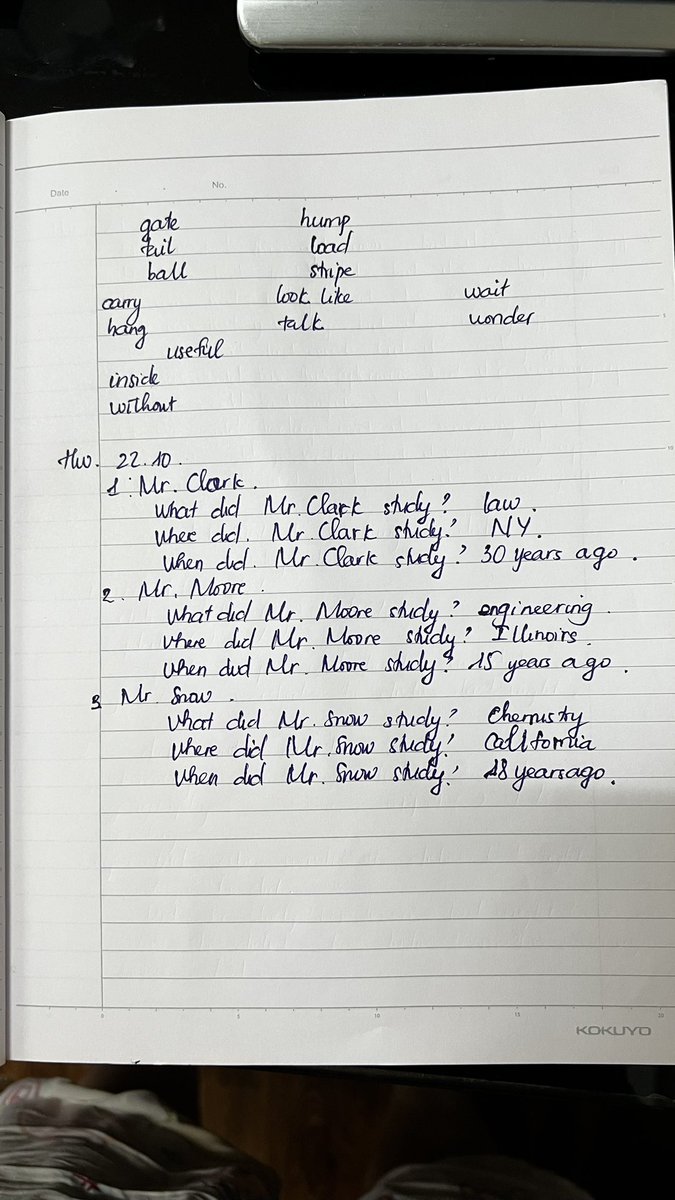 Date . . No.
gate hump
tail load
ball stripe
carry look like wait
hang talk wonder
useful
inside
without
Hw. 22.10.
1: Mr. Clark.
What did Mr. Clark study? law.
Whee did. Mr. Clark study? NY.
When did. Mr. Clark study? 30 years ago.
2. Mr. Moore.
What did Mr. Moore study? engineering.
Where did Mr. Moore study? Illinoirs.
When did Mr. Moore study? 15 years ago.
3 Mr. Snow.
What did Mr. Snow study? Chemistry
Where did Mr. Snow study? California
When did Mr. Snow study? 18 years ago.
0 5 10 15 20
KOKUYO